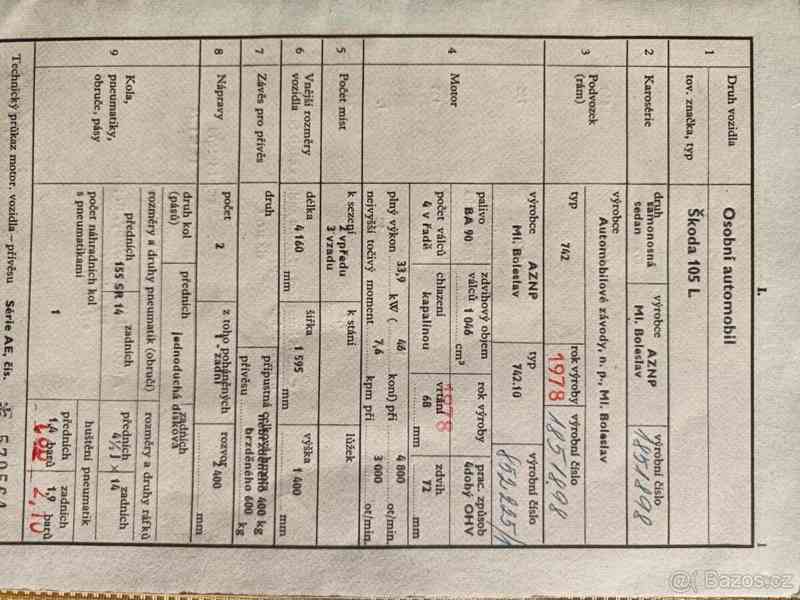 I.
1 Druh vozidla Osobní automobil
tov. značka, typ Škoda 105 L
2 Karosérie druh samonosná sedan výrobce AZNP Ml. Boleslav výrobní číslo
3 Podvozek (rám) výrobce Automobilové závody, n. p., Ml. Boleslav
typ 742 rok výroby 1978 výrobní číslo 1851898
4 Motor výrobce AZNP Ml. Boleslav typ 742.10 výrobní číslo
palivo BA 90 zdvihový objem válců 1 046 cm³ rok výroby 1978 prac. způsob 4dobý OHV
počet válců 4 v řadě chlazení kapalinou vrtání 68 mm zdvih 72 mm
plný výkon 33,9 kW ( 46 koní) při 4 800 ot/min.
nejvyšší točivý moment 7,4 kpm při 3 000 ot/min.
5 Počet míst k sezení 2 vpředu 3 vzadu k stání lůžek
6 Vnější rozměry vozidla délka 4 160 mm šířka 1 595 mm výška 1 400 mm
7 Závěs pro přívěs druh přípustná celková hmotn. přívěsu nebrzděného 400 kg brzděného 600 kg
8 Nápravy počet 2 z toho poháněných 1 zadní rozvor 2 400 mm
9 Kola, pneumatiky, obruče, pásy druh kol (pásů) předních jednoduchá disková zadních
rozměry a druhy pneumatik (obručí) rozměry a druhy ráfků
předních 155 SR 14 zadních předních 4½ J × 14 zadních
počet náhradních kol s pneumatikami 1 huštění pneumatik předních 1,4 barů zadních 1,9 barů 2,10
Technický průkaz motor. vozidla – přívěsu Série AE, čís.
@ Bazos.cz